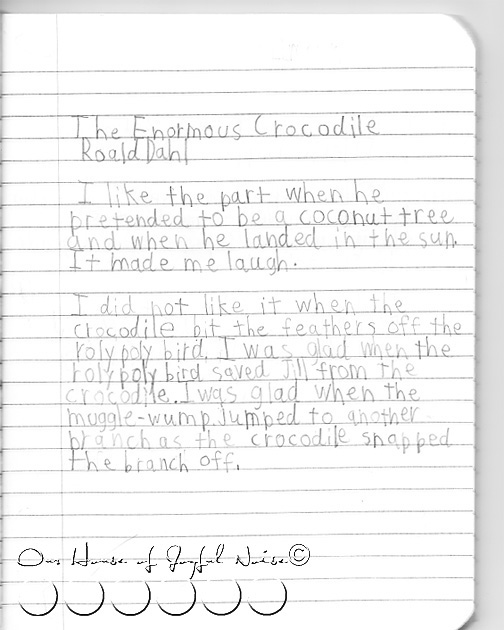 The Enormous Crocodile
Roald Dahl
I like the part when he
pretended to be a coconut tree
and when he landed in the sun.
It made me laugh.
I did not like it when the
crocodile bit the feathers off the
roly poly bird. I was glad when the
roly poly bird saved Jill from the
crocodile. I was glad when the
muggle-wump jumped to another
branch as the crocodile snapped
the branch off.
Our House of Joyful Noise©